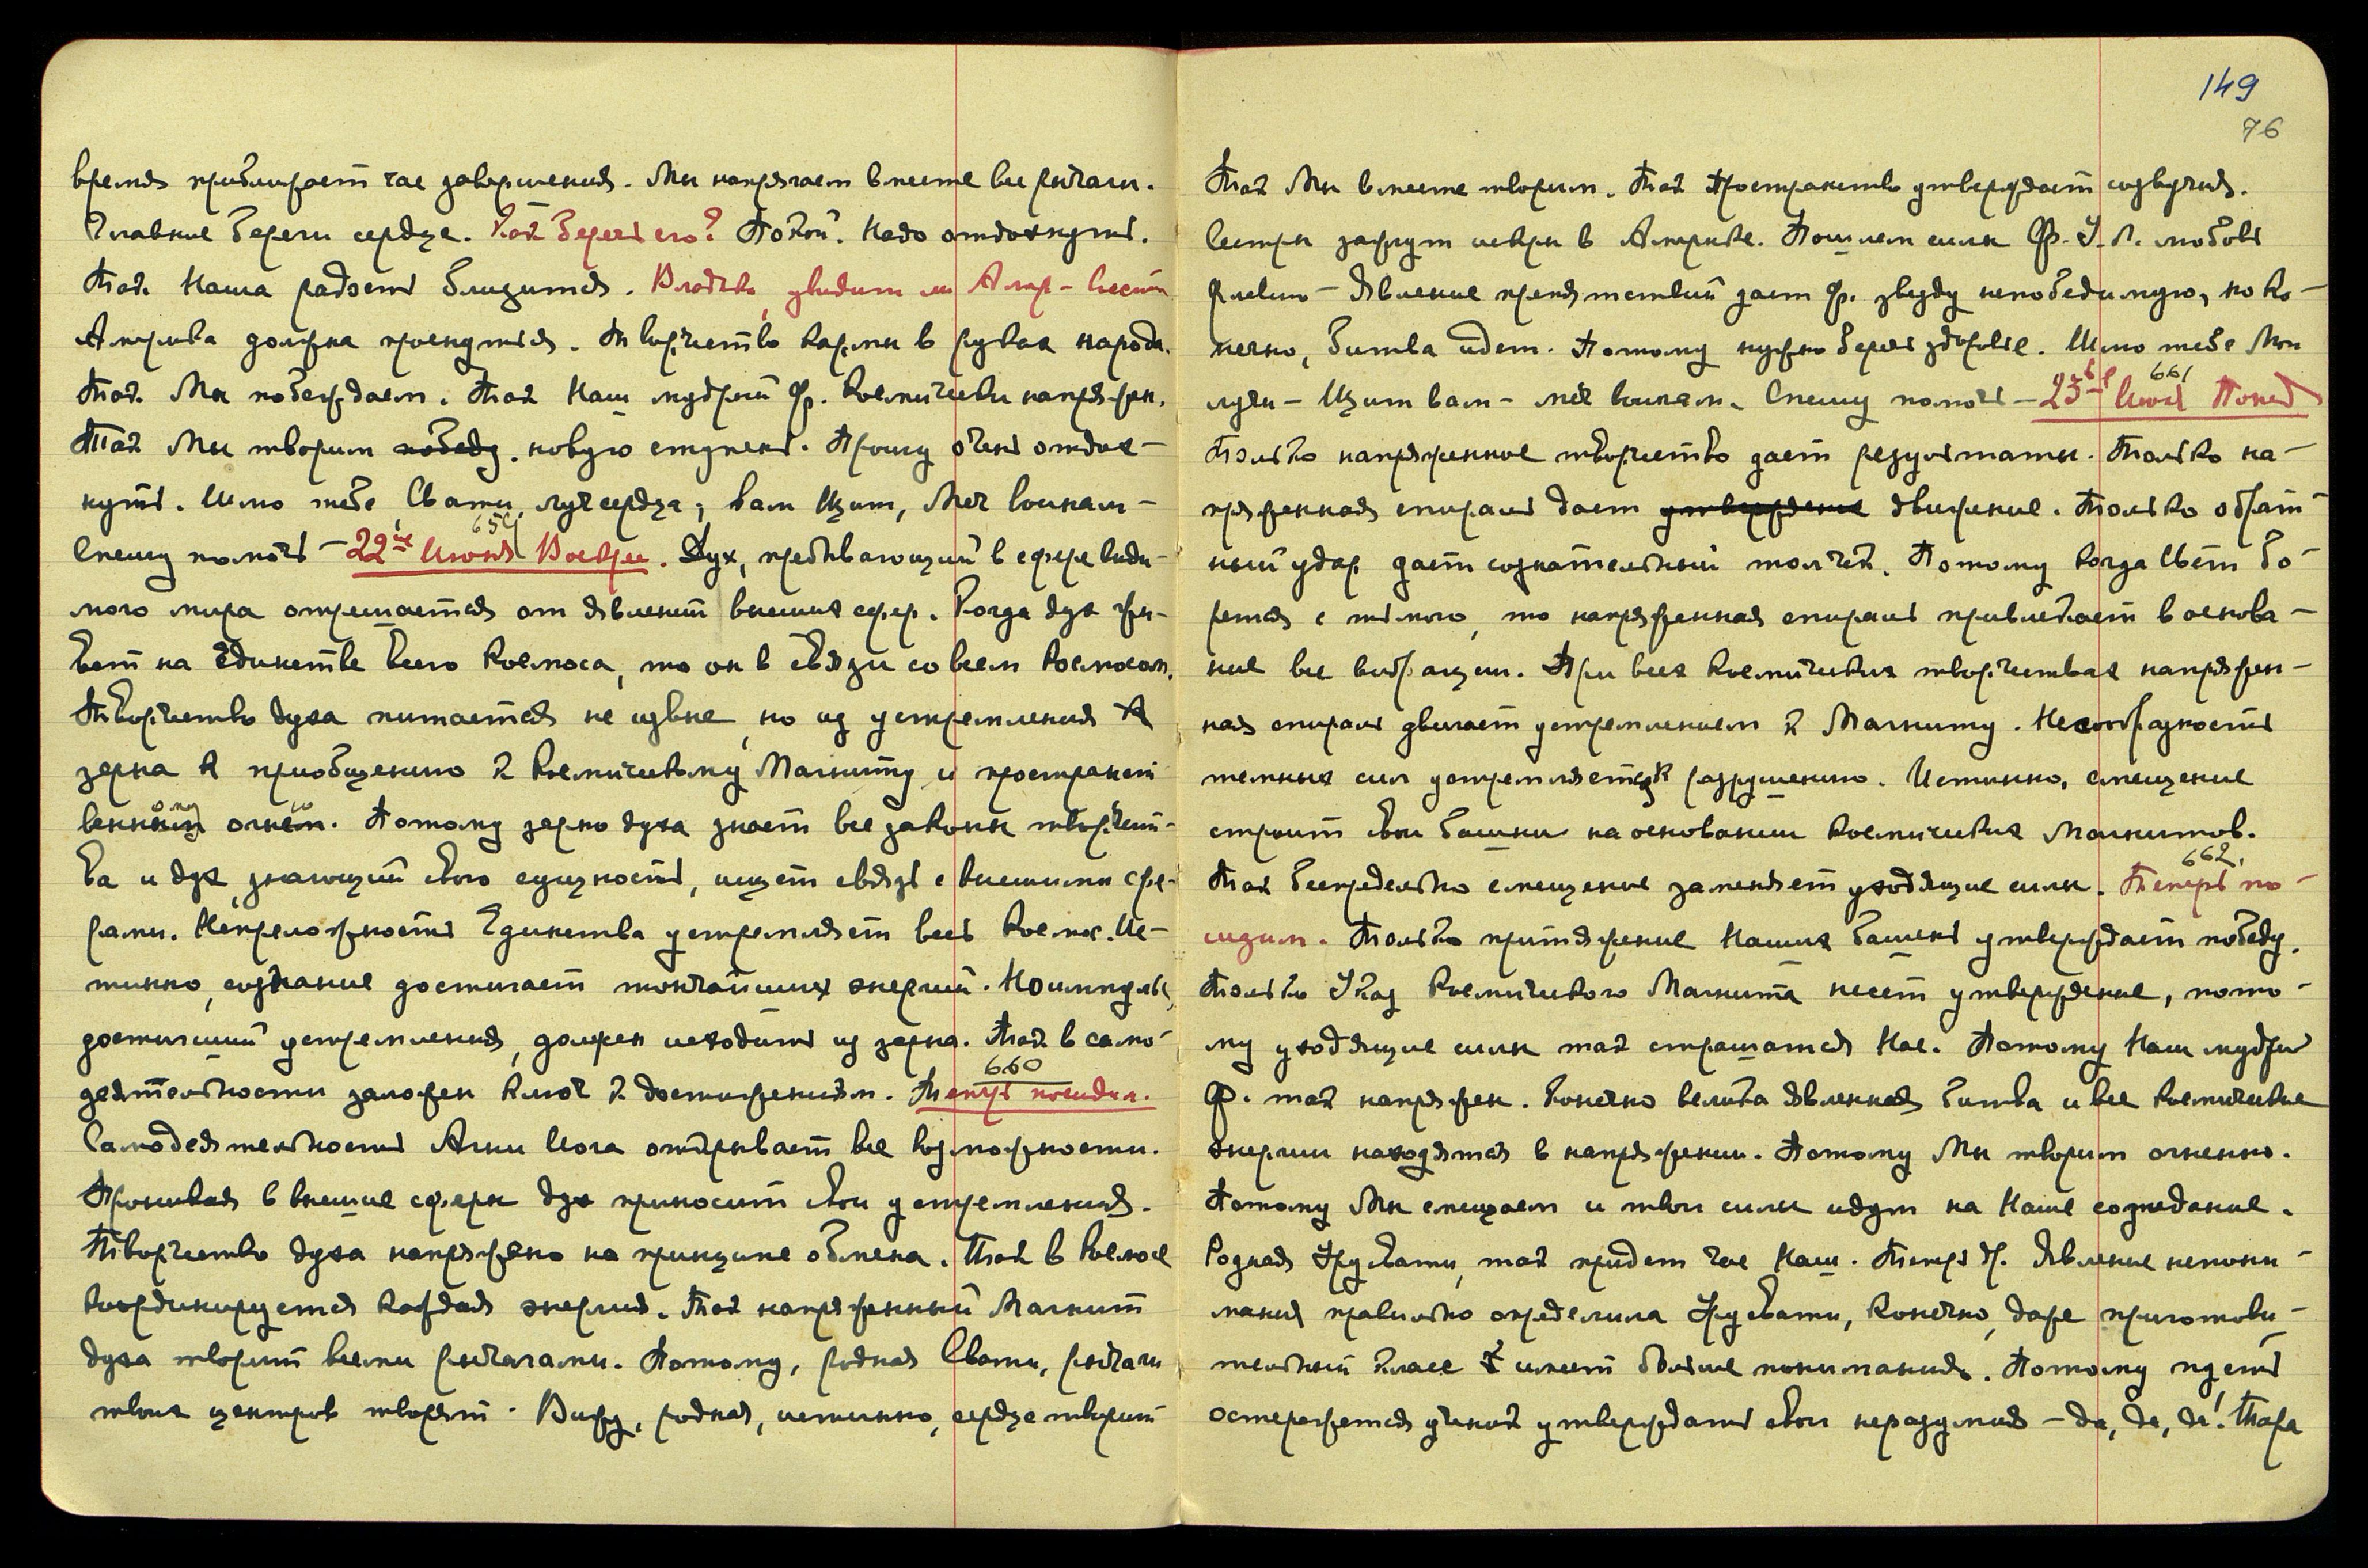 время приближает час завершения. Мы напрягаем вместе все рычаги.
Главное береги сердце. Как беречь его? Покой. Надо отдохнуть.
Так Наша радость близится. Владыко, увидит ли Амер-
Америка должна проснуться. Творчество кармы в руках народа.
Так Мы побеждаем. Так Наш мудрый Ф. космически напряжен.
Так Мы творим победу. новую ступень. Прошу очень отдох-
нуть. Шлю тебе Свати, луч сердца; вам Щит, Меч воинам –
659
Спешу помочь – 22ое Июня Воскрес. Дух, пребывающий в сфере види-
мого мира отрешается от явлений высших сфер. Когда дух жи-
вет на Единстве всего Космоса, то он в связи со всем Космосом.
Творчество духа питается не извне, но из устремления
зерна к приобщению к Космическому Магниту и пространст
венному огню. Потому зерно духа знает все законы творчест-
ва и дух, знающий свою сущность, ищет связь с высшими сфе-
рами. Непреложность Единства устремляет весь Космос. Ис-
тинно, сознание достигает тончайших энергий. Но импульс,
достигший устремления, должен исходить из зерна. Так в само-
деятельности заложен ключ к достижениям. 660 Теперь посидим.
Самодеятельность Агни Йога открывает все возможности.
Проникая в высшие сферы дух приносит свои устремления.
Творчество духа напряжено на принципе обмена. Так в Космосе
координируется каждая энергия. Так напряженный Магнит
духа творит всеми рычагами. Потому, родная Свати, рычаги
твоих центров творят. Вижу, родная, истинно, сердце творит
149
76
Так Мы вместе творим. Так Пространство утверждает созвучия.
Сестры зажгут искры в Америке. Пошлем силы Ф. У. Л. любовь
– Явление препятствий дает Ф. звезду непобедимую, но ко-
нечно, битва идет. Потому нужно беречь здоровье. Шлю тебе Мои
лучи – Щит вам – меч воинам. Спешу помочь – 23ье 661 Июня Понед
Только напряженное творчество дает результаты. Только на-
пряженная спираль дает утверждение движение. Только обрат-
ный удар дает сознательный толчок. Потому когда Свет бо-
рется с тьмою, то напряженная спираль привлекает в основа-
ние все вибрации. При всех космических творчествах напряжен-
ная спираль двигает устремлением к Магниту. Несообразность
темных сил устремляется к разрушению. Истинно, смещение
строит свои башни на основании Космических Магнитов.
662.
Так беспредельно смещение заменяет уходящие силы. Теперь по-
сидим. Только притяжение Наших башен утверждает победу.
Только Указ Космического Магнита несет утверждение, пото-
му уходящие силы так страшатся Нас. Потому Наш мудрый
Ф. так напряжен. Конечно велика явленная битва и все космические
энергии находятся в напряжении. Потому Мы творим огненно.
Потому Мы смещаем и твои силы идут на Наше созидание.
Родная Урусвати, так придет час Наш. Теперь др. Явление непони-
мания правильно определила Урусвати, конечно, даже приготови-
тельный класс имеет больше понимания. Потому пусть
остережется ученик утверждать свои неразумия – да, да, да! Тара